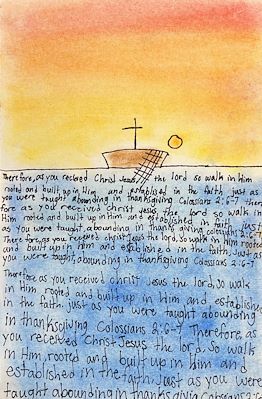 Therefore, as you received Christ Jesus, the lord so walk in Him
rooted and built up in Him and established in the faith just as
you were taught abounding in thanksgiving Colossians 2:6-7 There
fore as you received christ Jesus the lord so walk in
Him rooted and built up in Him and established in faith, just
as you were taught, abounding in thanksgiving colossians 2:6-7
Therefore, as you received christ Jesus the lord, so walk in Him rooted
and built up in Him and established in the faith Just as
you were taught, abounding in thanksgiving Colossians 2:6-7
Therefore as you received christ Jesus the lord, so walk
in Him, rooted and built up in Him and establish
in the faith. just as you were taught abounding
in thanksgiving Colossians 2:6-7 Therefore, as
you received Christ Jesus the lord. So walk
in Him, rooted and built up in Him and
established in the faith. Just as you were
taught abounding in thanksgiving Colossians 2:6-7